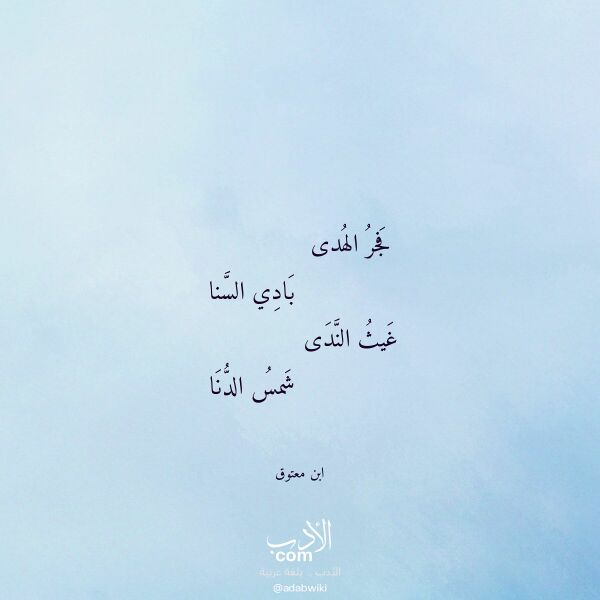 فَجرُ الهُدى
بَادِي السَّنا
غَيثُ النَّدَى
شَمسُ الدُّنَا
ابن معتوق
الأدب
com
الأدب .. بلغة عربية
@adabwiki